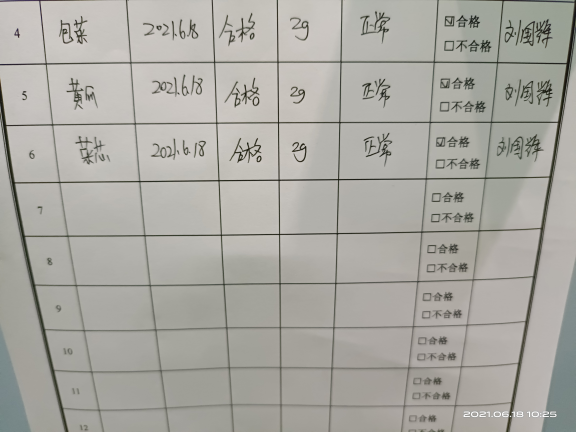 4 包菜 2021.6.18 合格 2g 正常 ☑合格 刘国辉
☐不合格
5 黄瓜 2021.6.18 合格 2g 正常 ☑合格 刘国辉
☐不合格
6 菜芯 2021.6.18 合格 2g 正常 ☑合格 刘国辉
☐不合格
7 ☐合格
☐不合格
8 ☐合格
☐不合格
9 ☐合格
☐不合格
10 ☐合格
☐不合格
11 ☐合格
☐不合格
12 ☐合格
☐不合格
2021.06.18 10:25